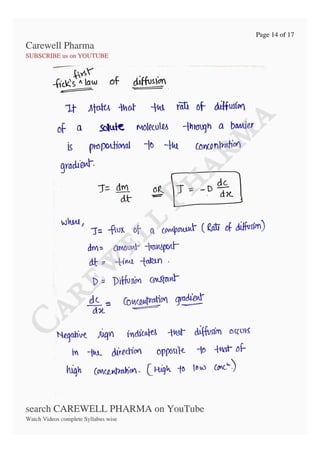 Page 14 of 17
Carewell Pharma
SUBSCRIBE us on YOUTUBE
fick's ^first law of diffusion
It states that the rate of diffusion
of a solute molecules through a barrier
is proportional to the concentration
gradient.
J = dm/dt OR J = -D dc/dx
where,
J = flux of a component (Rate of diffusion)
dm = amount transport
dt = time taken.
D = Diffusion constant
dc/dx = Concentration gradient
Negative sign indicates that diffusion occurs
in the direction opposite to that of
high concentration. [High to low conc^n.)
CAREWELL PHARMA
search CAREWELL PHARMA on YouTube
Watch Videos complete Syllabus wise